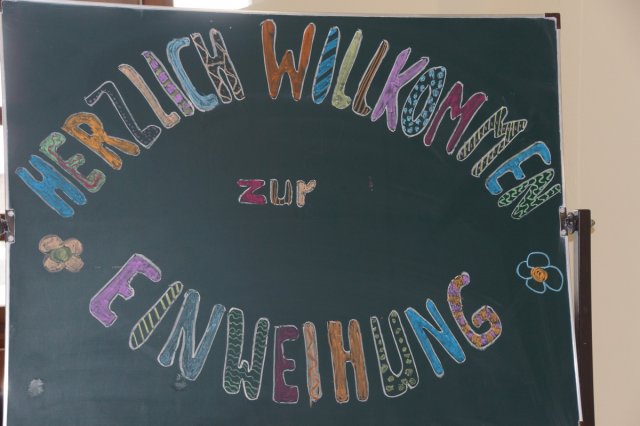 HERZLICH WILLKOMMEN
zur
EINWEIHUNG